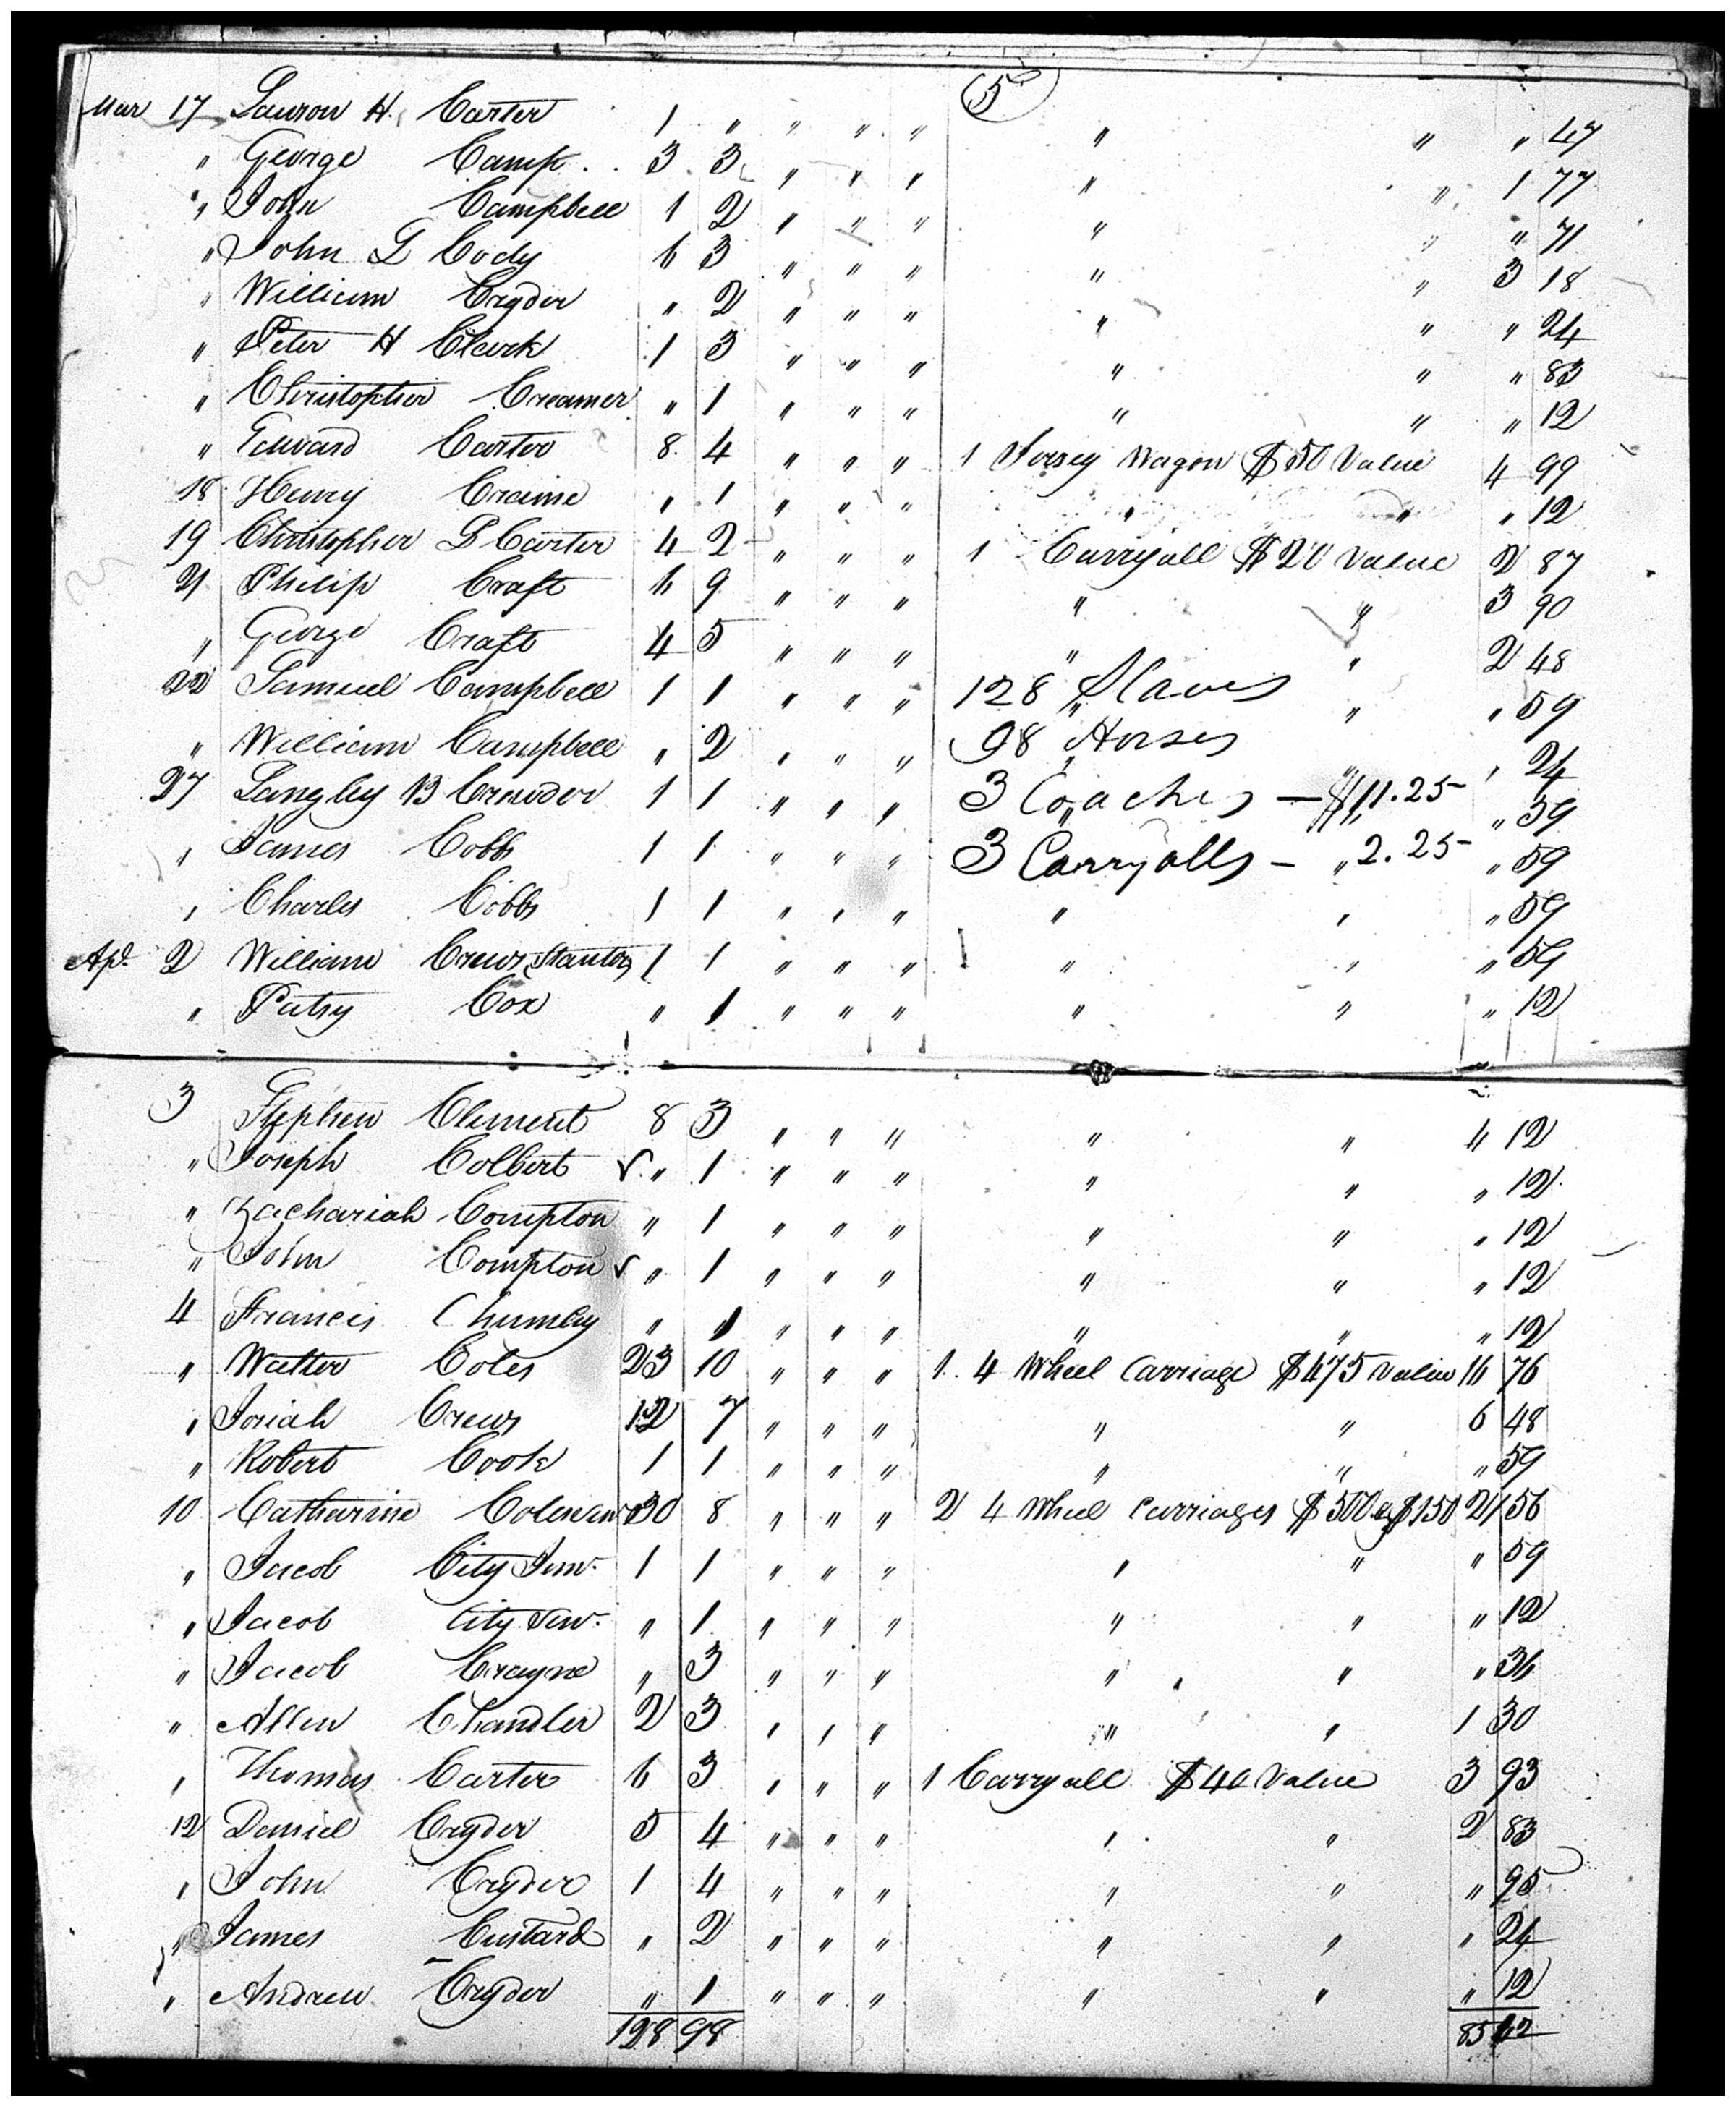 5
Mar 17 Lawson H. Carter 1 " " " " " " " 47
" George Camp 3 3 " " " " " 1 77
" John Campbell 1 2 " " " " " " 71
" John L Cody 6 3 " " " " " 3 18
" William Cryder " 2 " " " " " " 24
" Peter H Clark 1 3 " " " " " " 83
" Christopher Creamer " 1 " " " " " " 12
" Edward Carter 8 4 " " " 1 Jersey Wagon $50 Value 4 99
18 Henry Craine " 1 " " " " " " 12
19 Christopher L Carter 4 2 " " " 1 Carryall $20 Value 2 87
21 Philip Craft 6 9 " " " " " 3 90
" George Craft 4 5 " " " " " 2 48
22 Samuel Campbell 1 1 " " " 128 " Slaves " " 59
" William Campbell " 2 " " " 98 " Horses " " 24
27 Langley B Crowder 1 1 " " " 3 Coaches — $11.25 " 59
" James Cobbs 1 1 " " " 3 Carryalls — " 2.25 " 59
" Charles Cobbs 1 1 " " " " " " 59
Apl. 2 William Crews, Staunton 1 1 " " " " " " 59
" Patsy Cox " 1 " " " " " " 12
3 Stephen Clement 8 3 " " " " " 4 12
" Joseph Colbert √ " 1 " " " " " " 12
" Zachariah Compton " 1 " " " " " " 12
" John Compton √ " 1 " " " " " " 12
4 Francis Chumley " 1 " " " " " " 12
" Walter Coles 23 10 " " " 1. 4 Wheel Carriage $475 Value 16 76
" Josiah Crews 12 7 " " " " " 6 48
" Robert Cook 1 1 " " " " " " 59
10 Catharine Coleman 30 8 " " " 2 4 Wheel Carriages $500 & $150 21 56
" Jacob City Junr. 1 1 " " " " " " 59
" Jacob City Senr. " 1 " " " " " " 12
" Jacob Crayne " 3 " " " " " " 36
" Allen Chandler 2 3 " " " " " 1 30
" Thomas Carter 6 3 " " " 1 Carryall $40 Value 3 93
12 Daniel Cryder 5 4 " " " " " 2 83
" John Cryder 1 4 " " " " " " 95
" James Custard " 2 " " " " " " 24
" Andrew Cryder " 1 " " " " " " 12
128 98 85 42